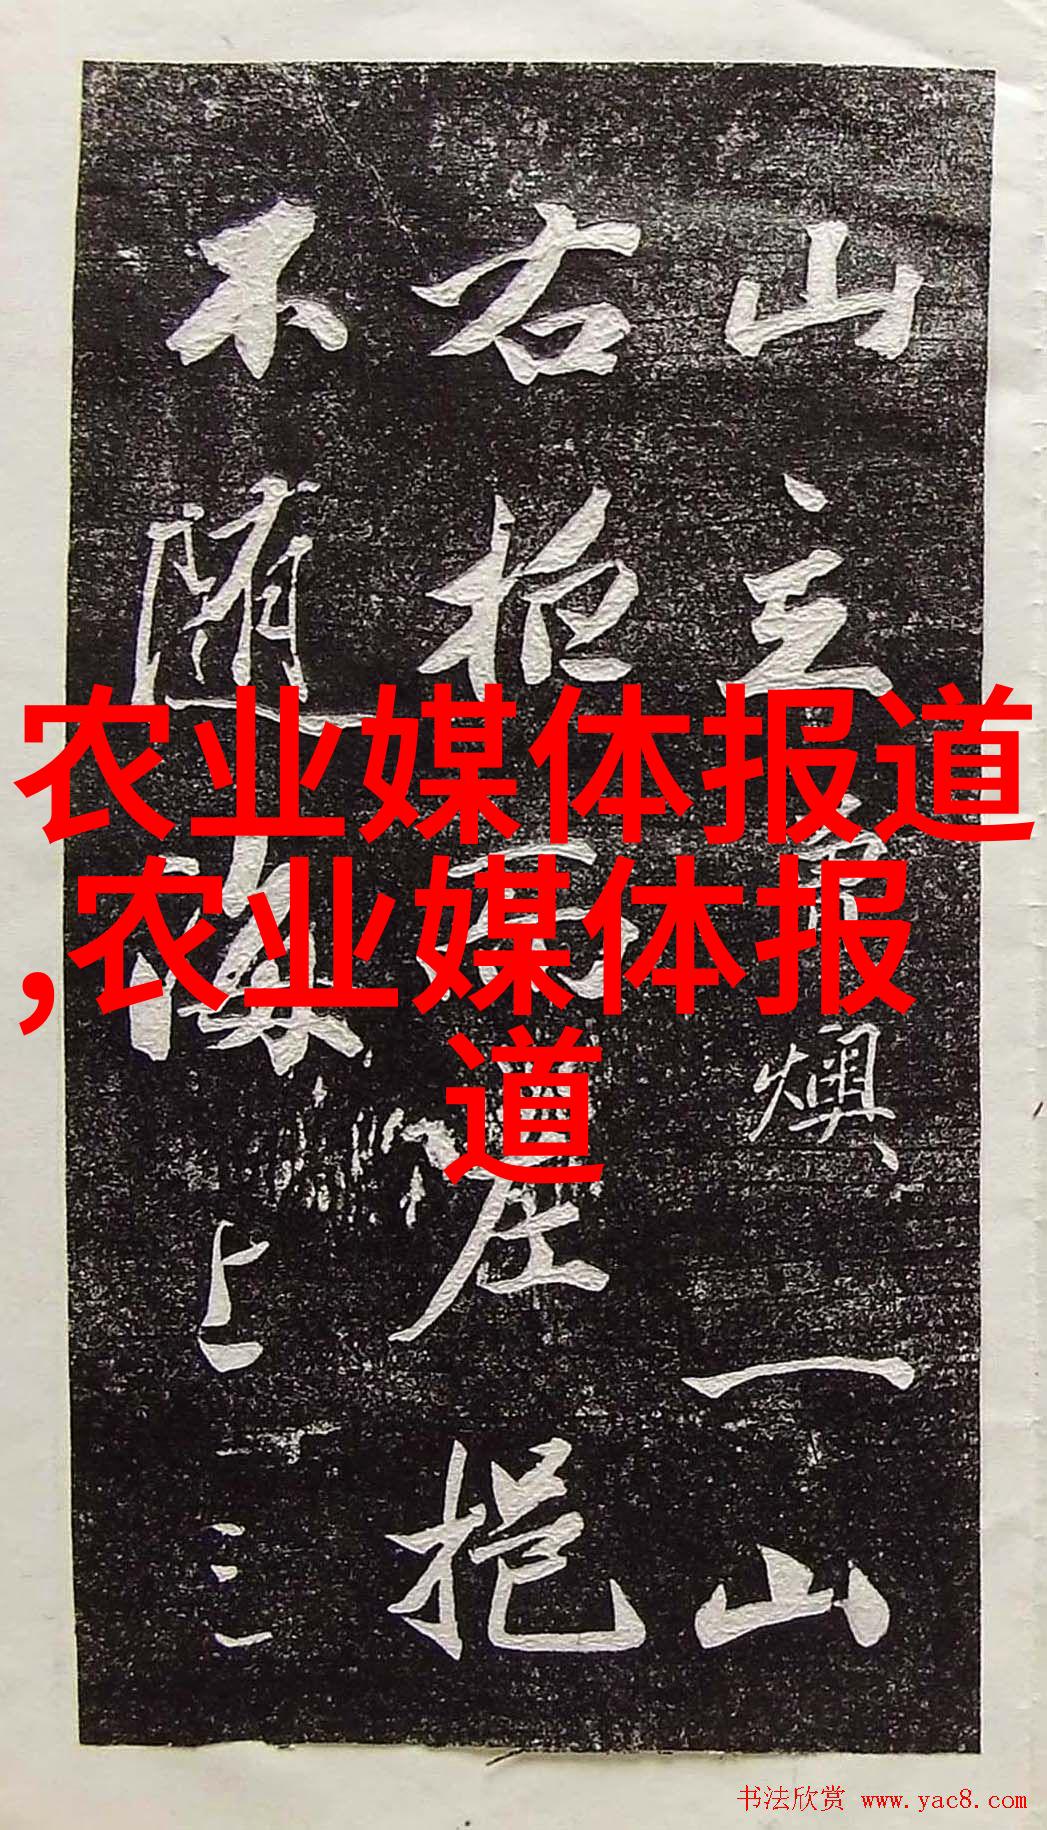 山主常燠、一山
右抱天左挹
不随海上三
农业媒体报道
,农业媒体报
道
书法欣赏 www.yac8.com